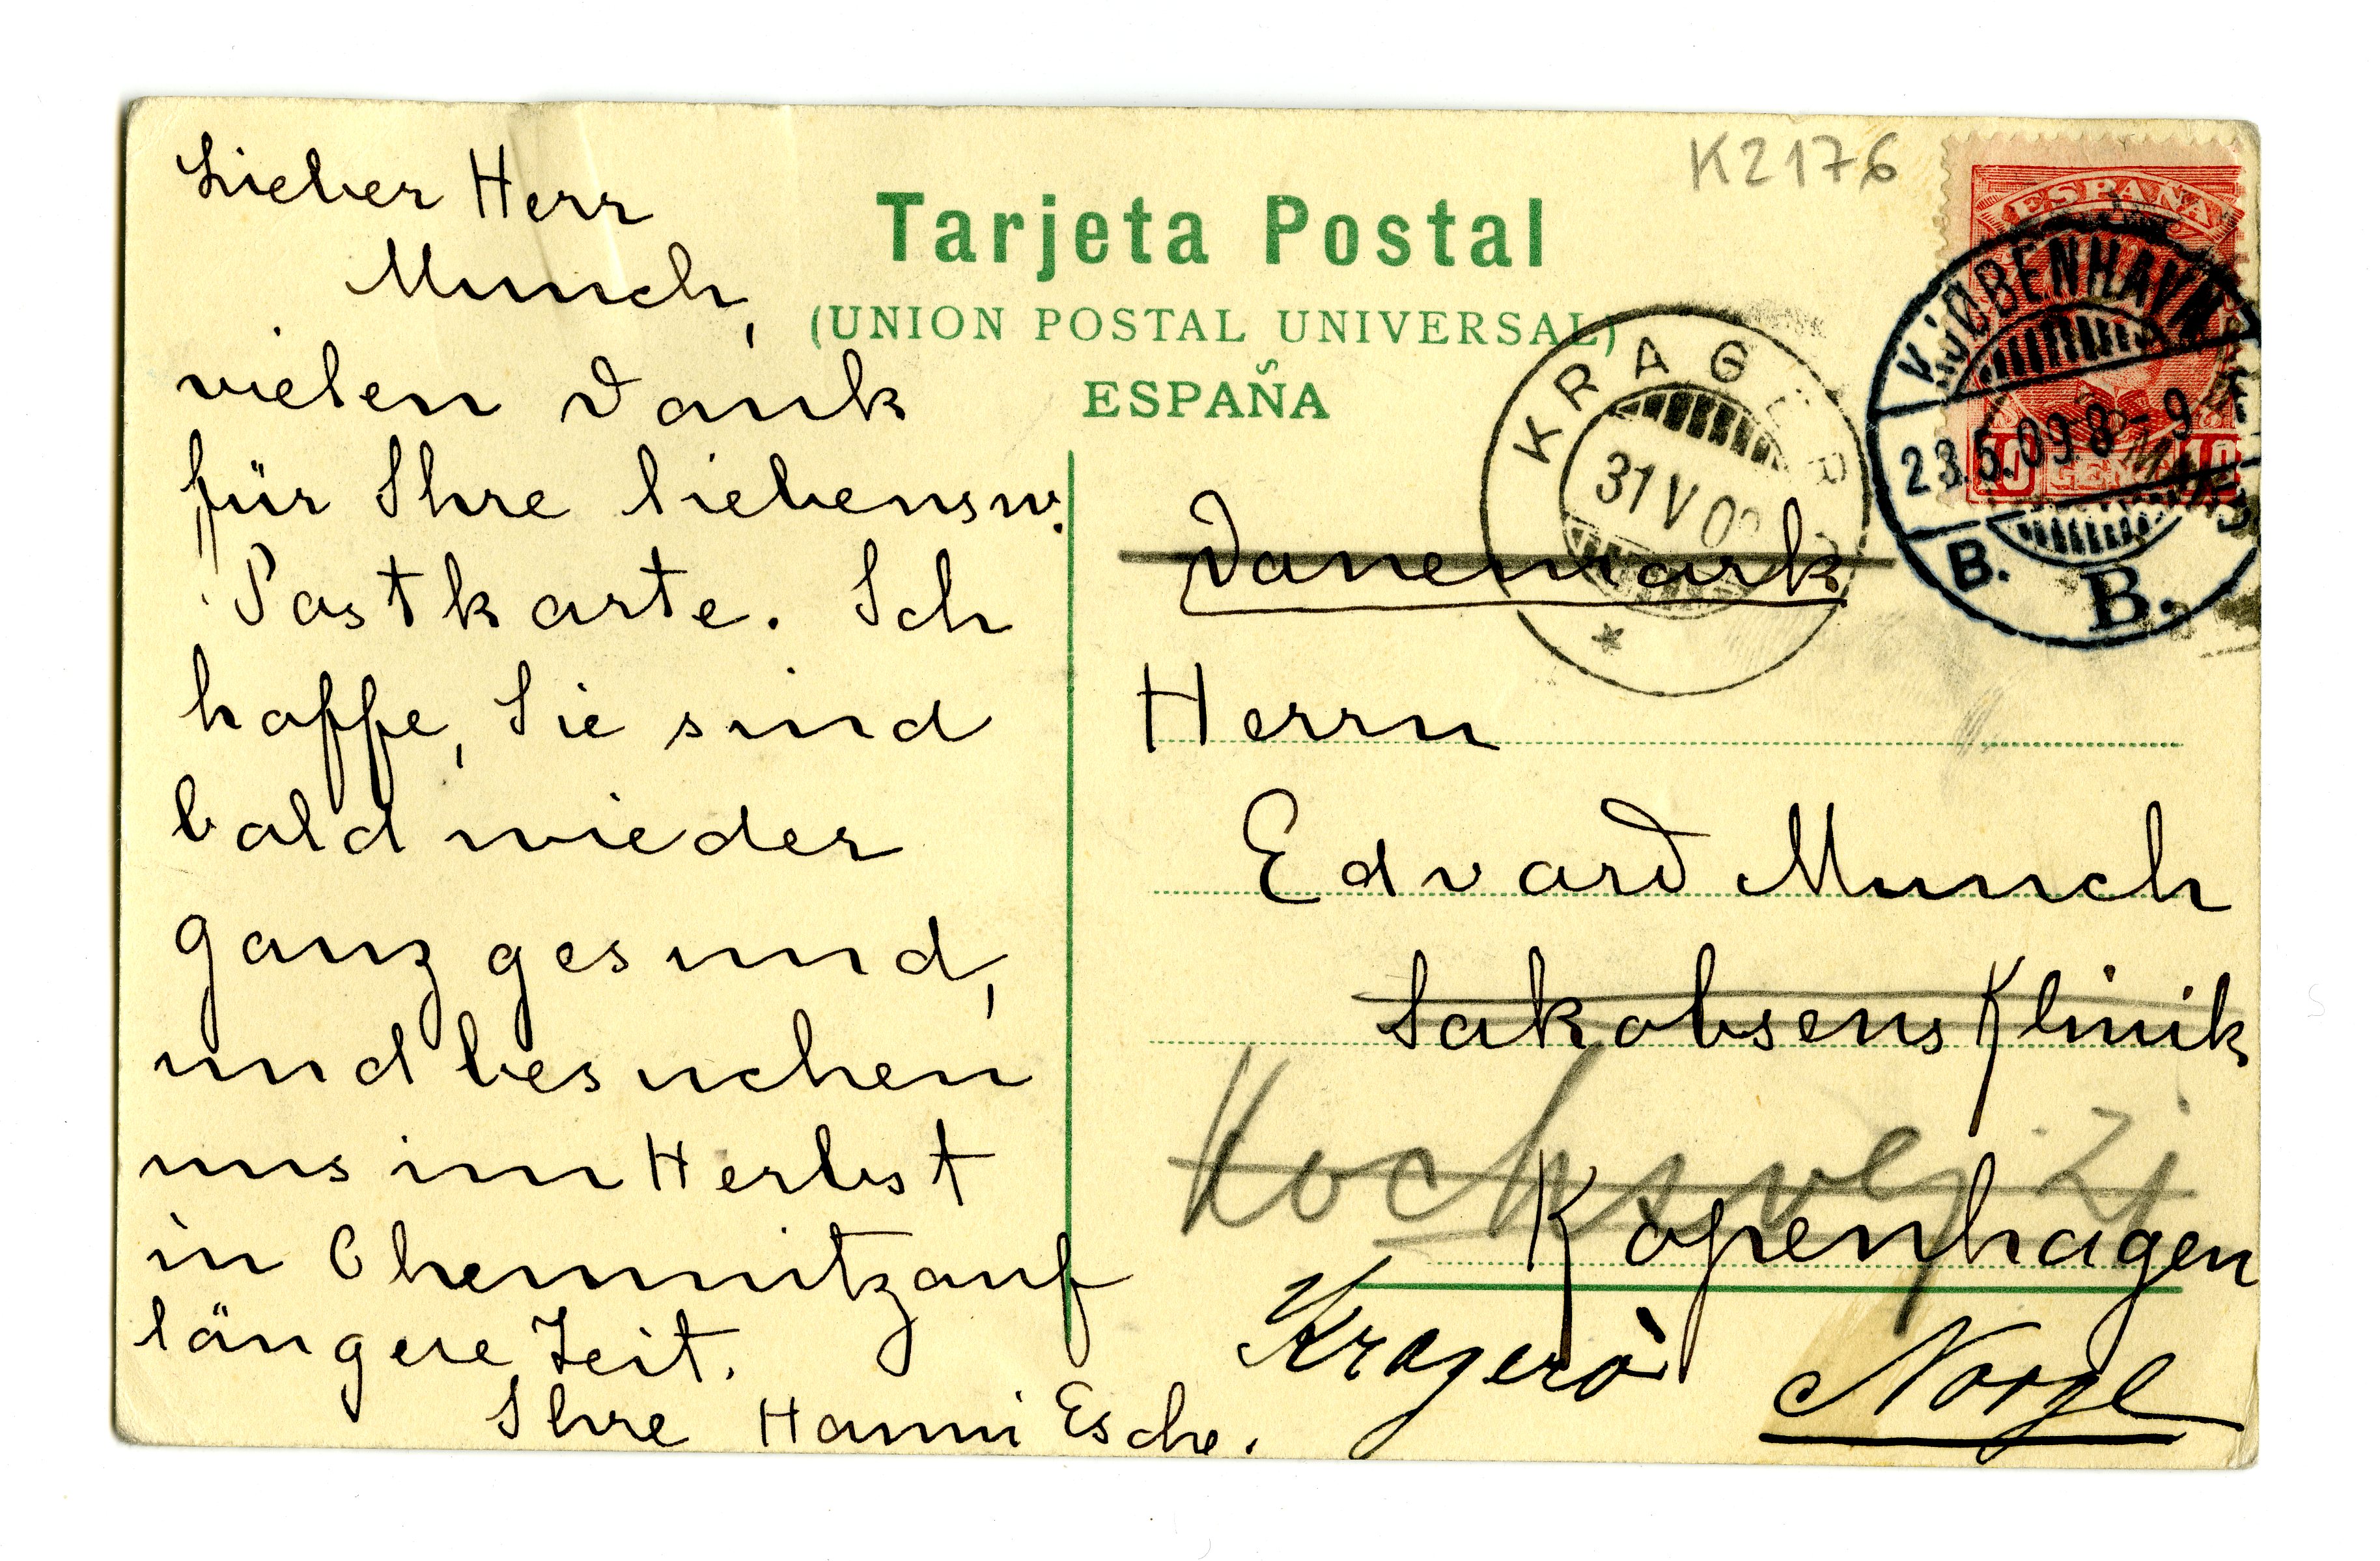 Lieber Herr
Munch,
vielen Dank
für Ihre liebensw.
Postkarte. Ich
hoffe, Sie sind
bald wieder
ganz gesund,
und besuchen
uns im Herbst
in Chemnitz auf
längere Zeit.
Ihre Hanni Esche.
K2176
Tarjeta Postal
(UNION POSTAL UNIVERSAL)
ESPAÑA
ESPAÑA
10 CENT 10
KJØBENHAVN
23.5.09 8-9
B.
B.
KRAGERØ
31 V 09
Danemark
Herrn
Edvard Munch
Jakobsens Klinik
Kochsvej 21
Kopenhagen
Kragerø
Norge